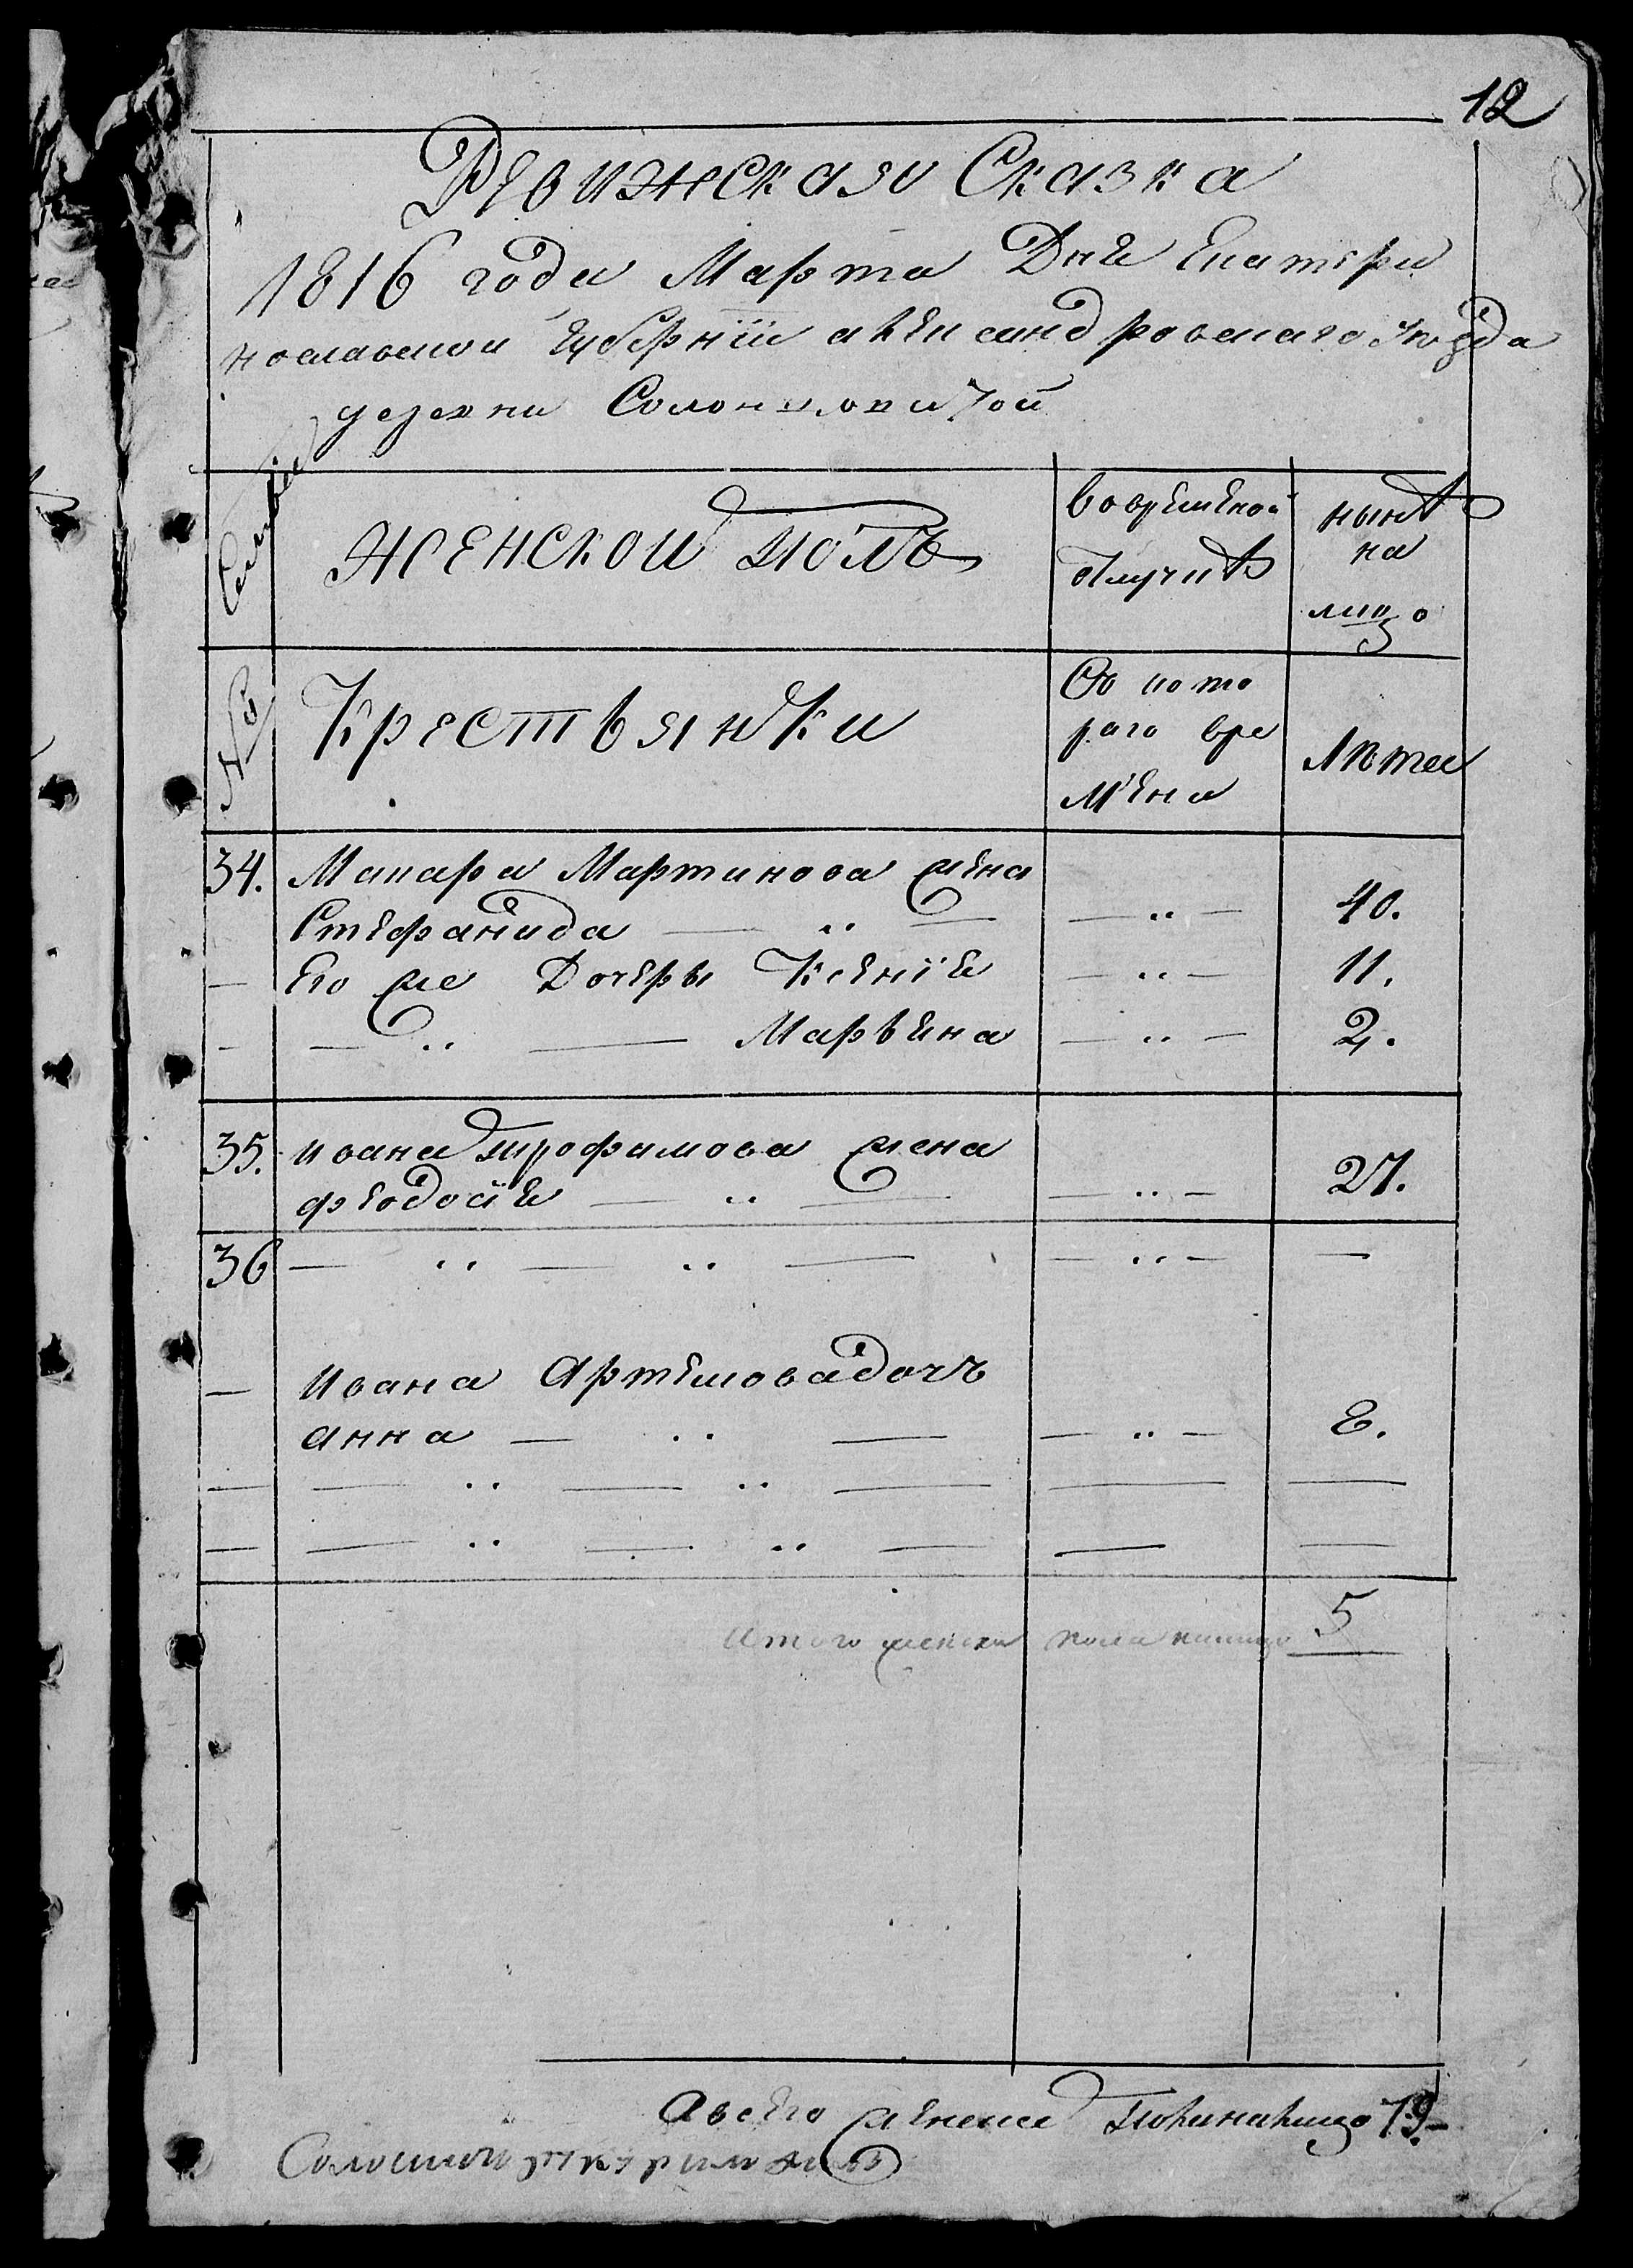 12
Ревижская Сказка
1816 года Марта Дня Екатери
нославской Губернїи александровскаго уѣзда
деревни Солон
Семьи
женской полъ
Вовременой
отлучкѣ
нынѣ
на
лицо
№
Крестьянки
Съ кото
раго вре
мѣни
лѣта
34. Макара Мартинова жена
Стефанида — „ — — „ — 40.
— Его же Дочеры Ксенїя — „ — 11.
— — „ — Марьяна — „ — 2.
35. ивана трофимова жена
феодосїя — „ — — „ — 27.
36 — „ — „ — — „ — —
— ивана Артемова дочь
анна — „ — — „ — 8.
— — „ — „ — — —
— — „ — „ — — —
итого женска пола налицо 5
Авсего женска пола налицо 79